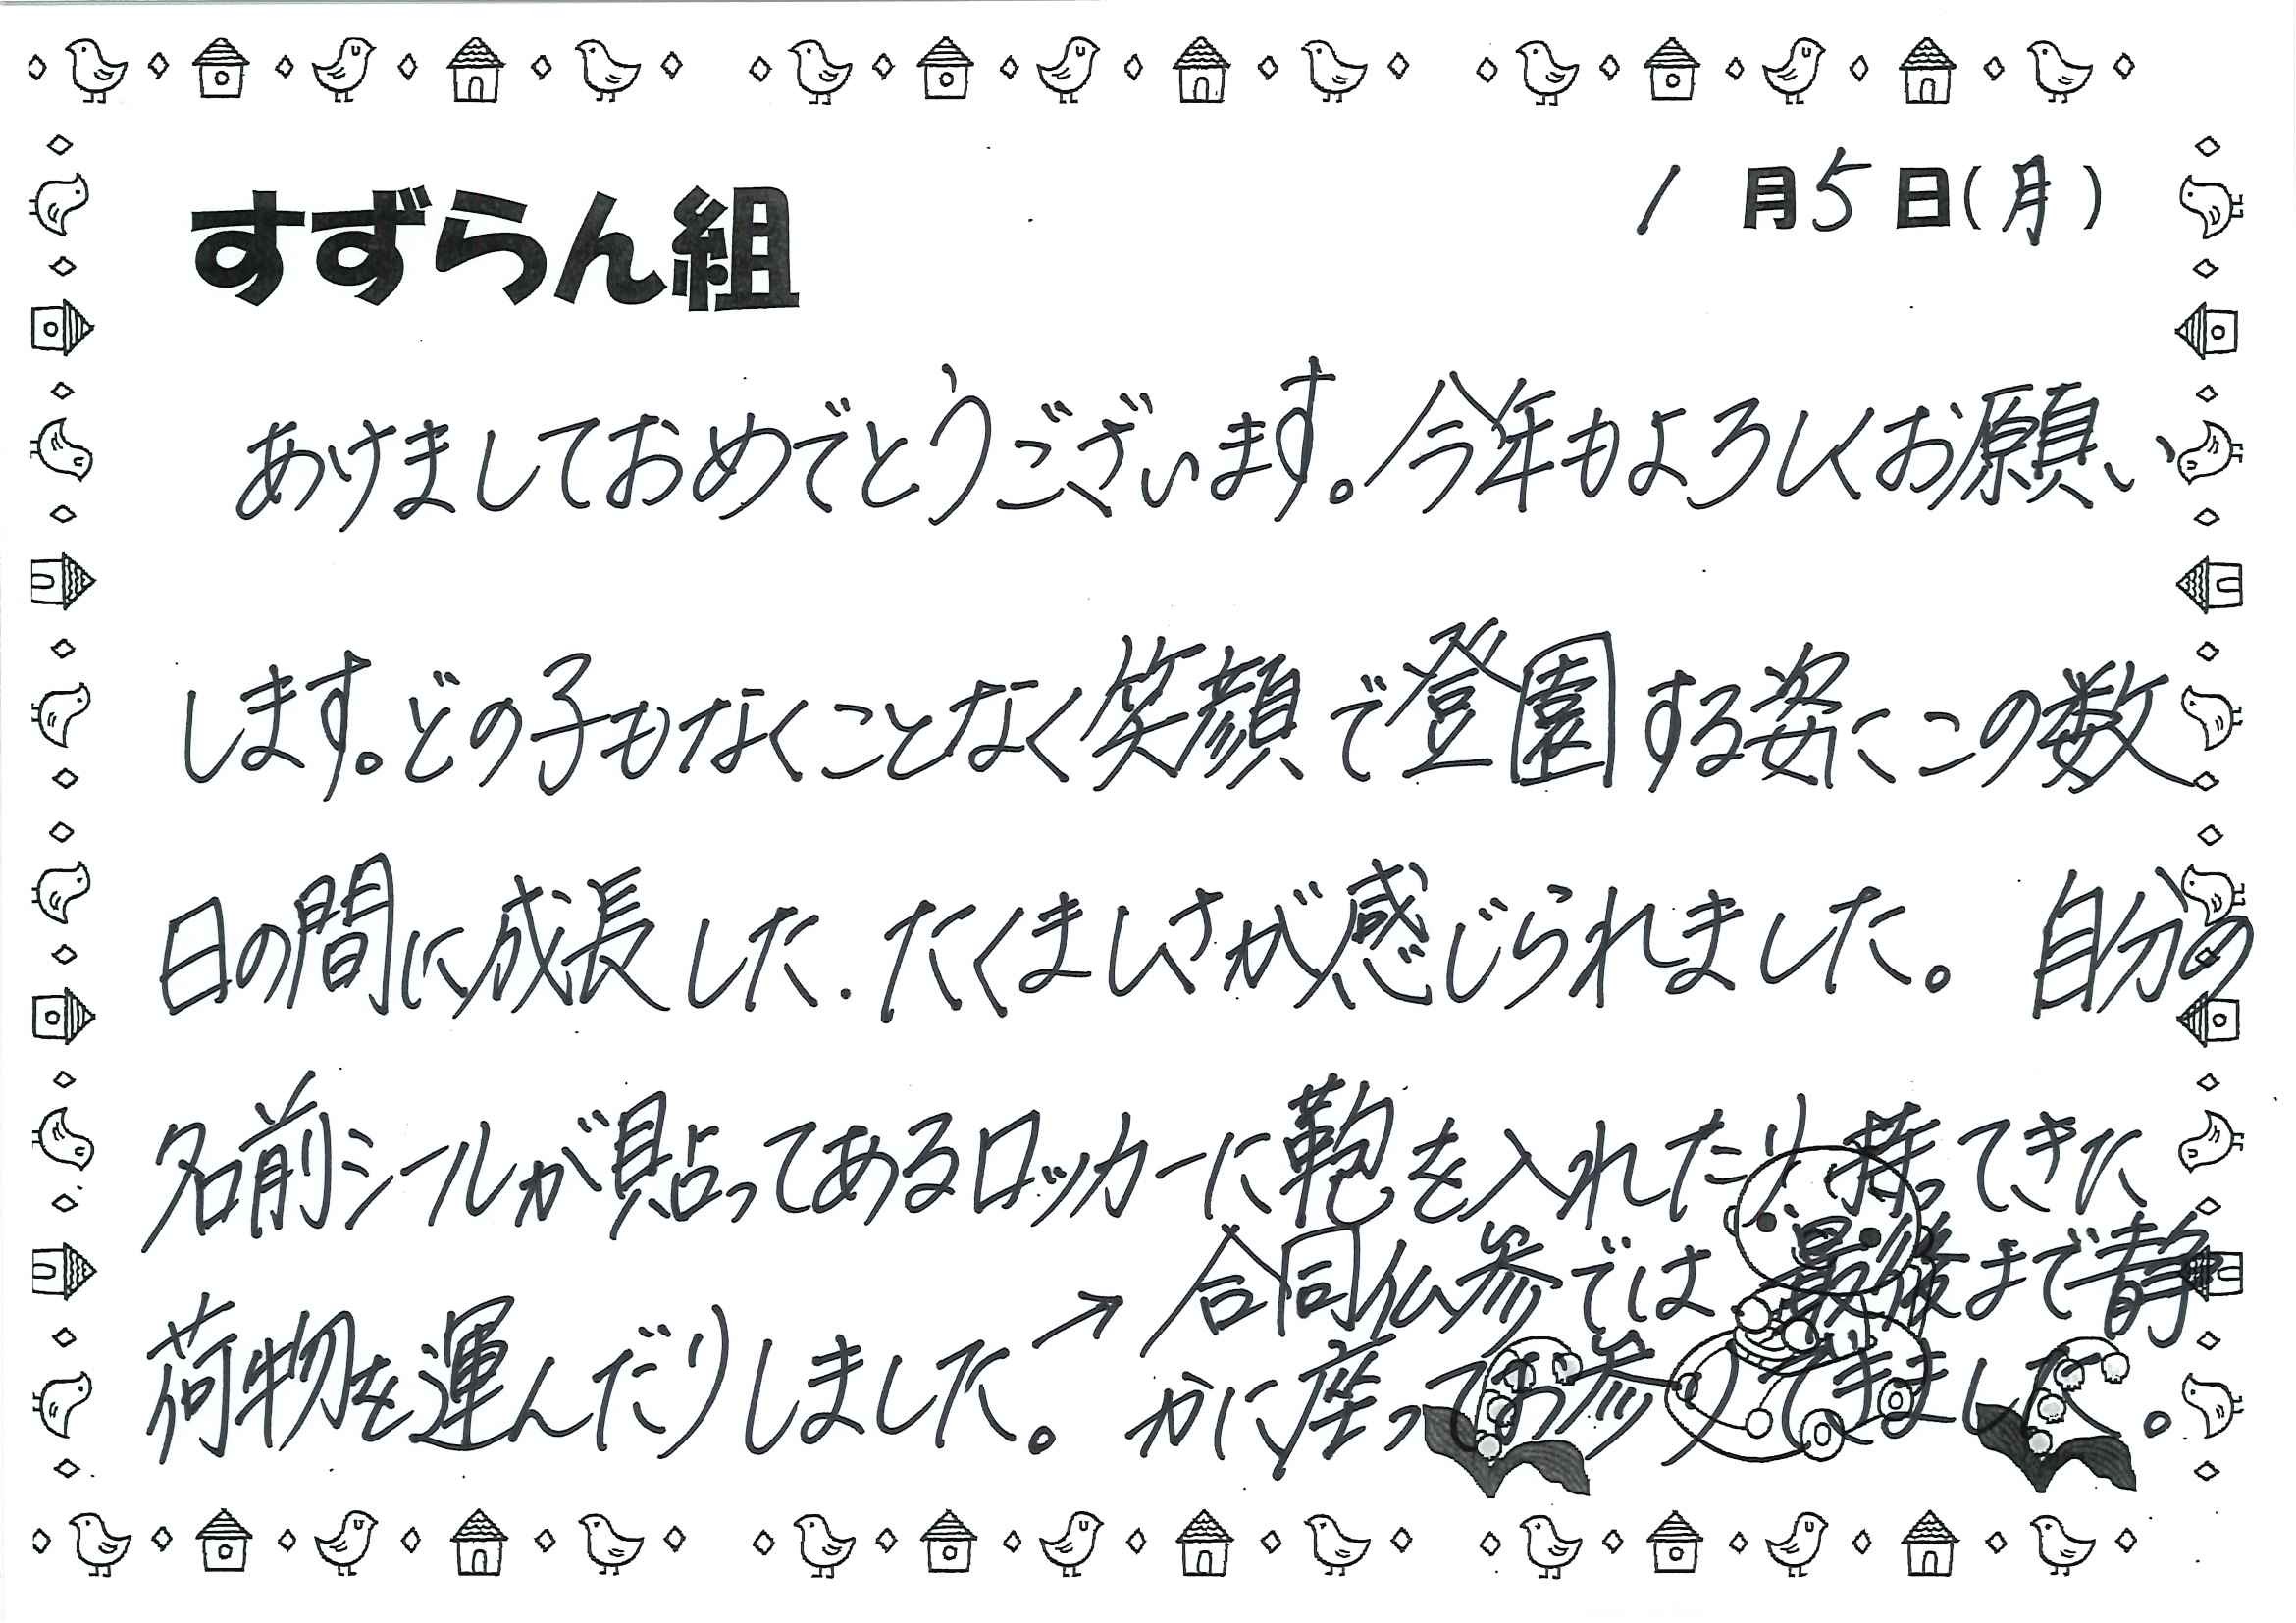 すずらん組
1月5日(月)
あけましておめでとうございます。今年もよろしくお願い
します。どの子もなくことなく笑顔で登園する姿にこの数
日の間に成長した.たくましさが感じられました。自分の
名前シールが貼ってあるロッカーに鞄を入れたり持ってきた
荷物を運んだりしました。→
合同仏参では最後まで静
かに座ってお参りできました。